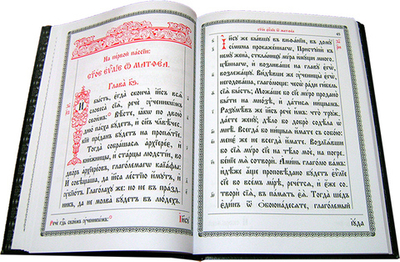 На первой пассїи
Ст҃ое еѵⷢ҇лїе ѿ матѳеа.
Глава к҃ѕ.
И бысть, егда сконча і҃исъ вся
словеса сїя, рече ᲂученикѡмъ
своимъ: Вѣсте, якѡ по двою
дню пасха бꙋдетъ, и сн҃ъ чл҃вѣче-
скїй преданъ бꙋдетъ на пропятїе.
Тогда собрашася архїерее, и
книжницы, и старцы людстїи, во
дворъ архїереовъ, глаголемагѡ каїафы:
И совѣщаша, да і҃иса лестїю имꙋтъ,
и ᲂубїютъ. Глаголахꙋ же: но не въ празд-
никъ, да не молва бꙋдетъ въ людехъ.
Рече гдⷭ҇ь своимъ ᲂученикѡмъ:
І҃исꙋ
І҃исꙋ же бывшꙋ въ виѳанїи, въ домꙋ
сїмѡна прокаженнагѡ, Пристꙋпи къ
немꙋ жена, стклянницꙋ мѵра имꙋщи много-
цѣннагѡ, и возливаше на главꙋ егѡ
возлежаща. Видѣвше же ᲂученицы егѡ,
негодоваша, глаголюще: чесѡ ради гибель
сїя бысть; Можаше бо сїе мѵро продано
быти на мнозѣ, и датися нищымъ.
Разꙋмѣвъ же і҃исъ, рече имъ: что трꙋж-
даете женꙋ; дѣло бо добро содѣла ѡ
мнѣ. Всегда бо нищыя имате съ собою:
мене же не всегда имате. Возлїявши
бо сїя мѵро сїе на тѣло мое, на погре-
бенїе мя сотвори. Аминь глаголю вамъ:
идѣже аще проповѣдано бꙋдетъ еѵⷢ҇лїе
сїе во всемъ мїрѣ, речется, и еже со-
твори сїя, въ память ея. Тогда шедъ
единъ ѿ ѻбоюнадесяте, глаголемый
їꙋда